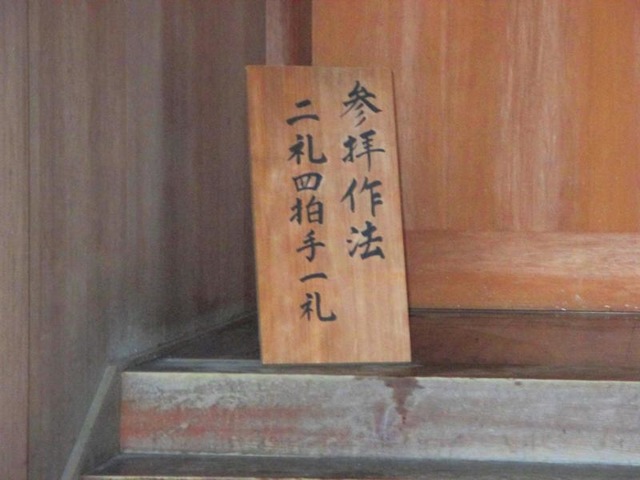 参拝作法
二礼四拍手一礼